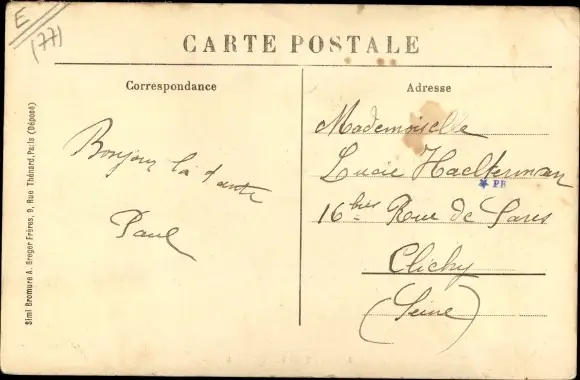 E
(77)
CARTE POSTALE
Correspondance
Adresse
Simi Bromure A. Breger Frères, 9, Rue Thénard, Paris (Déposé)
Bonjour la
Paul
Mademoiselle
Lucie Haelterman
PB
16 bis Rue de Paris
Clichy
(Seine)